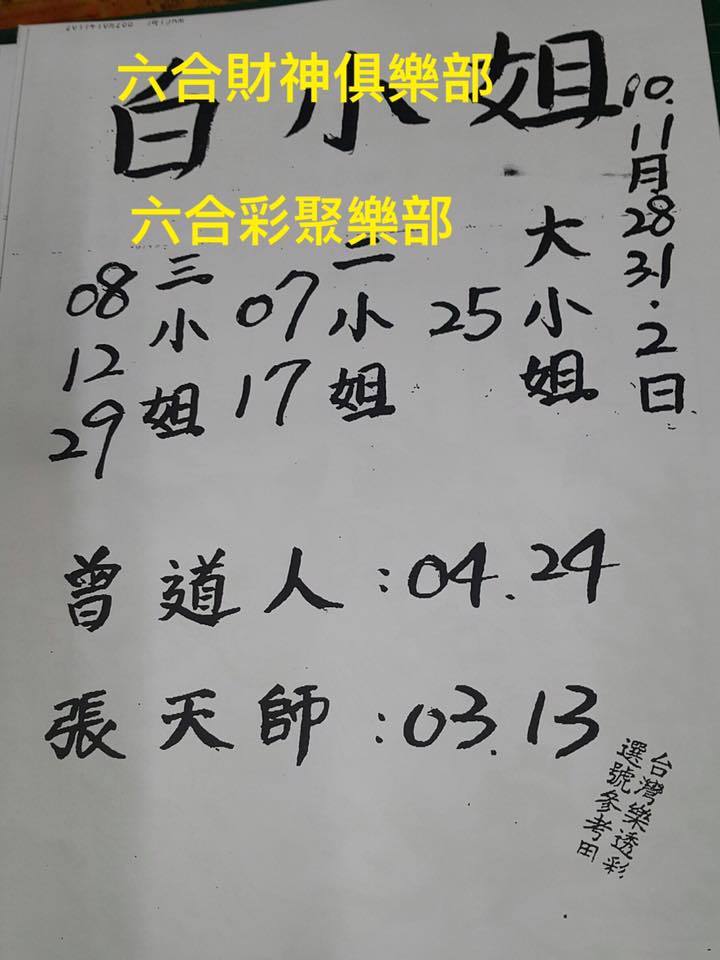 六合財神俱樂部
白小姐
六合彩聚樂部
10.11月28.31.2日
大小姐
25
二小姐
07
17
三小姐
08
12
29
曾道人:04.24
張天師:03.13
台灣樂透彩
選號參考用